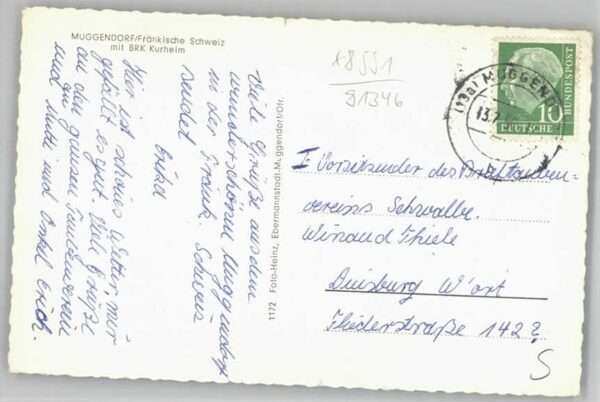 MUGGENDORF/Fränkische Schweiz
mit BRK Kurheim
Viele Grüße aus dem
wunderschönen Muggendorf
in der Fränk. Schweiz
sendet
Erika
Hier ist schönes Wetter, mir
gefällt es gut. Viele Grüße
an den ganzen
und Mutti und Onkel Erich.
1172 Foto-Heinz, Ebermannstadt. Muggendorf/Ofr.
91346
(13a) MUGGEND
13.
10
DEUTSCHE
BUNDESPOST
I Vorsitzender des Brieftauben-
vereins Schwalbe.
Winand Thiele
Duisburg W'ort
Fliederstraße 142?
S